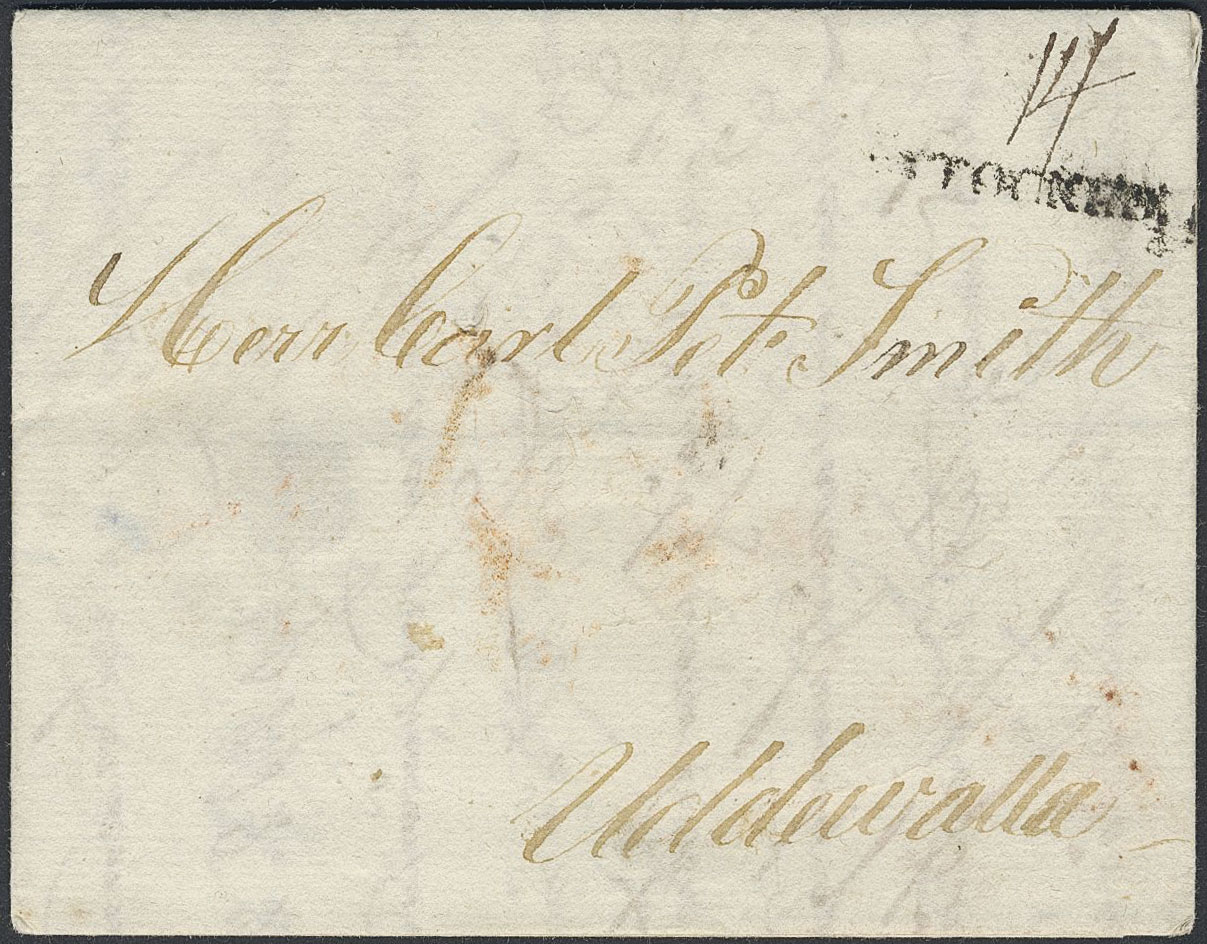 14
STOCKHOLM
Herr Carl Pet. Smith
Uddewalla